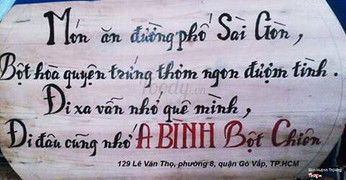 Món ăn đường phố Sài Gòn,
Bột hòa quyện trứng thơm ngon đượm tình.
Đi xa vẫn nhớ quê mình,
Đi đâu cũng nhớ A BÌNH Bột Chiên
129 Lê Văn Thọ, phường 8, quận Gò Vấp, TP.HCM